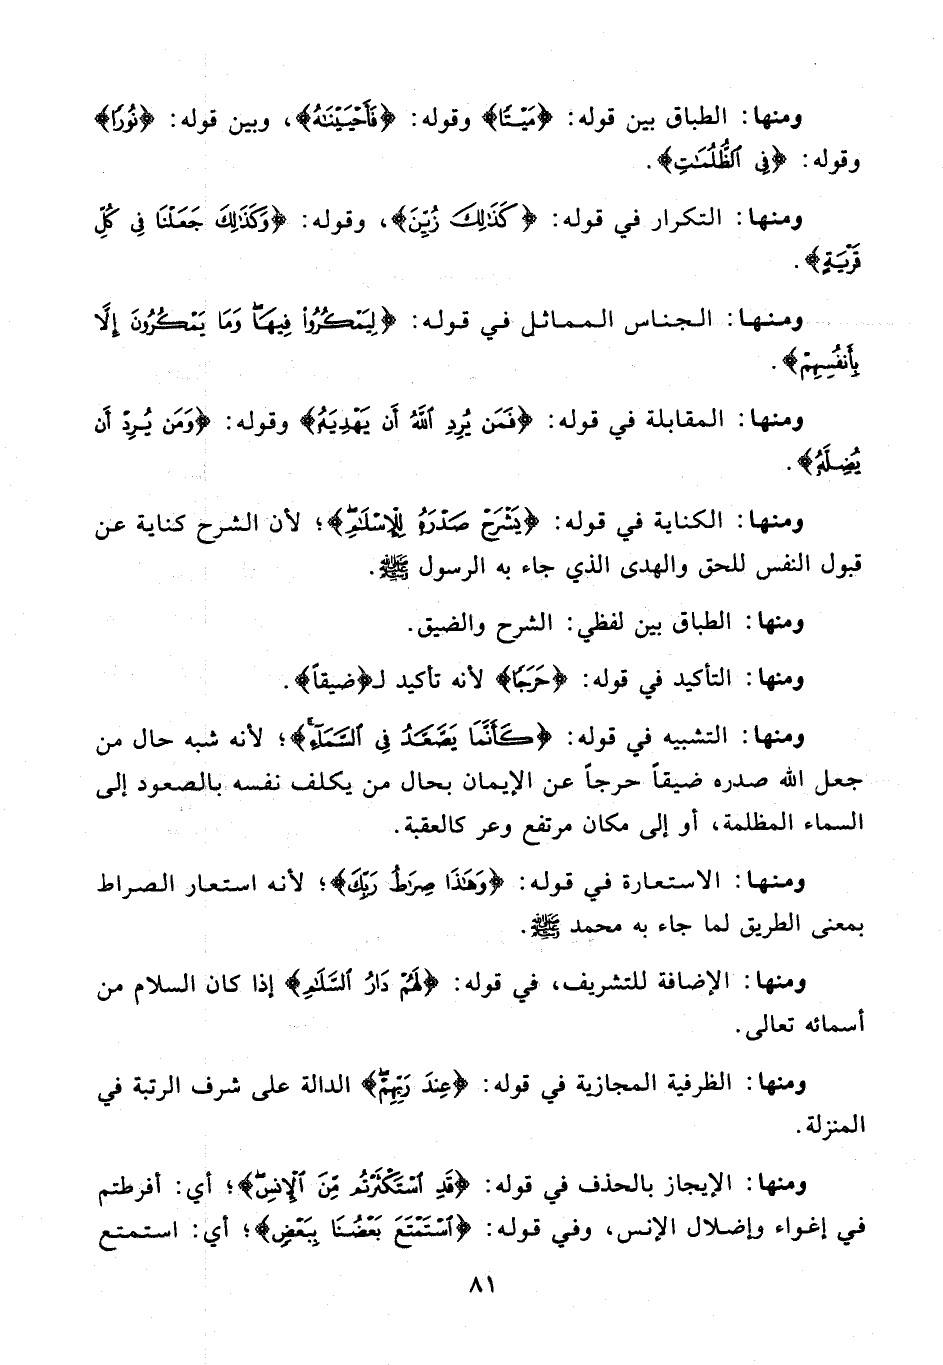 ومنها: الطباق بين قوله: ﴿مَيْتًا﴾ وقوله: ﴿فَأَحْيَيْنَٰهُ﴾، وبين قوله: ﴿نُورًا﴾
وقوله: ﴿فِى ٱلظُّلُمَٰتِ﴾.
ومنها: التكرار في قوله: ﴿كَذَٰلِكَ زُيِّنَ﴾، وقوله: ﴿وَكَذَٰلِكَ جَعَلْنَا فِى كُلِّ
قَرْيَةٍ﴾.
ومنها: الجناس المماثل في قوله: ﴿لِيَمْكُرُوا۟ فِيهَا ۖ وَمَا يَمْكُرُونَ إِلَّا
بِأَنفُسِهِمْ﴾.
ومنها: المقابلة في قوله: ﴿فَمَن يُرِدِ ٱللَّهُ أَن يَهْدِيَهُۥ﴾ وقوله: ﴿وَمَن يُرِدْ أَن
يُضِلَّهُۥ﴾.
ومنها: الكناية في قوله: ﴿يَشْرَحْ صَدْرَهُۥ لِلْإِسْلَٰمِ ۖ﴾؛ لأن الشرح كناية عن
قبول النفس للحق والهدى الذي جاء به الرسول ﷺ.
ومنها: الطباق بين لفظي: الشرح والضيق.
ومنها: التأكيد في قوله: ﴿حَرَجًا﴾ لأنه تأكيد لـ﴿ضيقاً﴾.
ومنها: التشبيه في قوله: ﴿كَأَنَّمَا يَصَّعَّدُ فِى ٱلسَّمَآءِ ۚ﴾؛ لأنه شبه حال من
جعل الله صدره ضيقاً حرجاً عن الإيمان بحال من يكلف نفسه بالصعود إلى
السماء المظلمة، أو إلى مكان مرتفع وعر كالعقبة.
ومنها: الاستعارة في قوله: ﴿وَهَٰذَا صِرَٰطُ رَبِّكَ﴾؛ لأنه استعار الصراط
بمعنى الطريق لما جاء به محمد ﷺ.
ومنها: الإضافة للتشريف، في قوله: ﴿لَهُمْ دَارُ ٱلسَّلَٰمِ﴾ إذا كان السلام من
أسمائه تعالى.
ومنها: الظرفية المجازية في قوله: ﴿عِندَ رَبِّهِمْ ۖ﴾ الدالة على شرف الرتبة في
المنزلة.
ومنها: الإيجاز بالحذف في قوله: ﴿قَدِ ٱسْتَكْثَرْتُم مِّنَ ٱلْإِنسِ ۖ﴾؛ أي: أفرطتم
في إغواء وإضلال الإنس، وفي قوله: ﴿ٱسْتَمْتَعَ بَعْضُنَا بِبَعْضٍ﴾؛ أي: استمتع
٨١